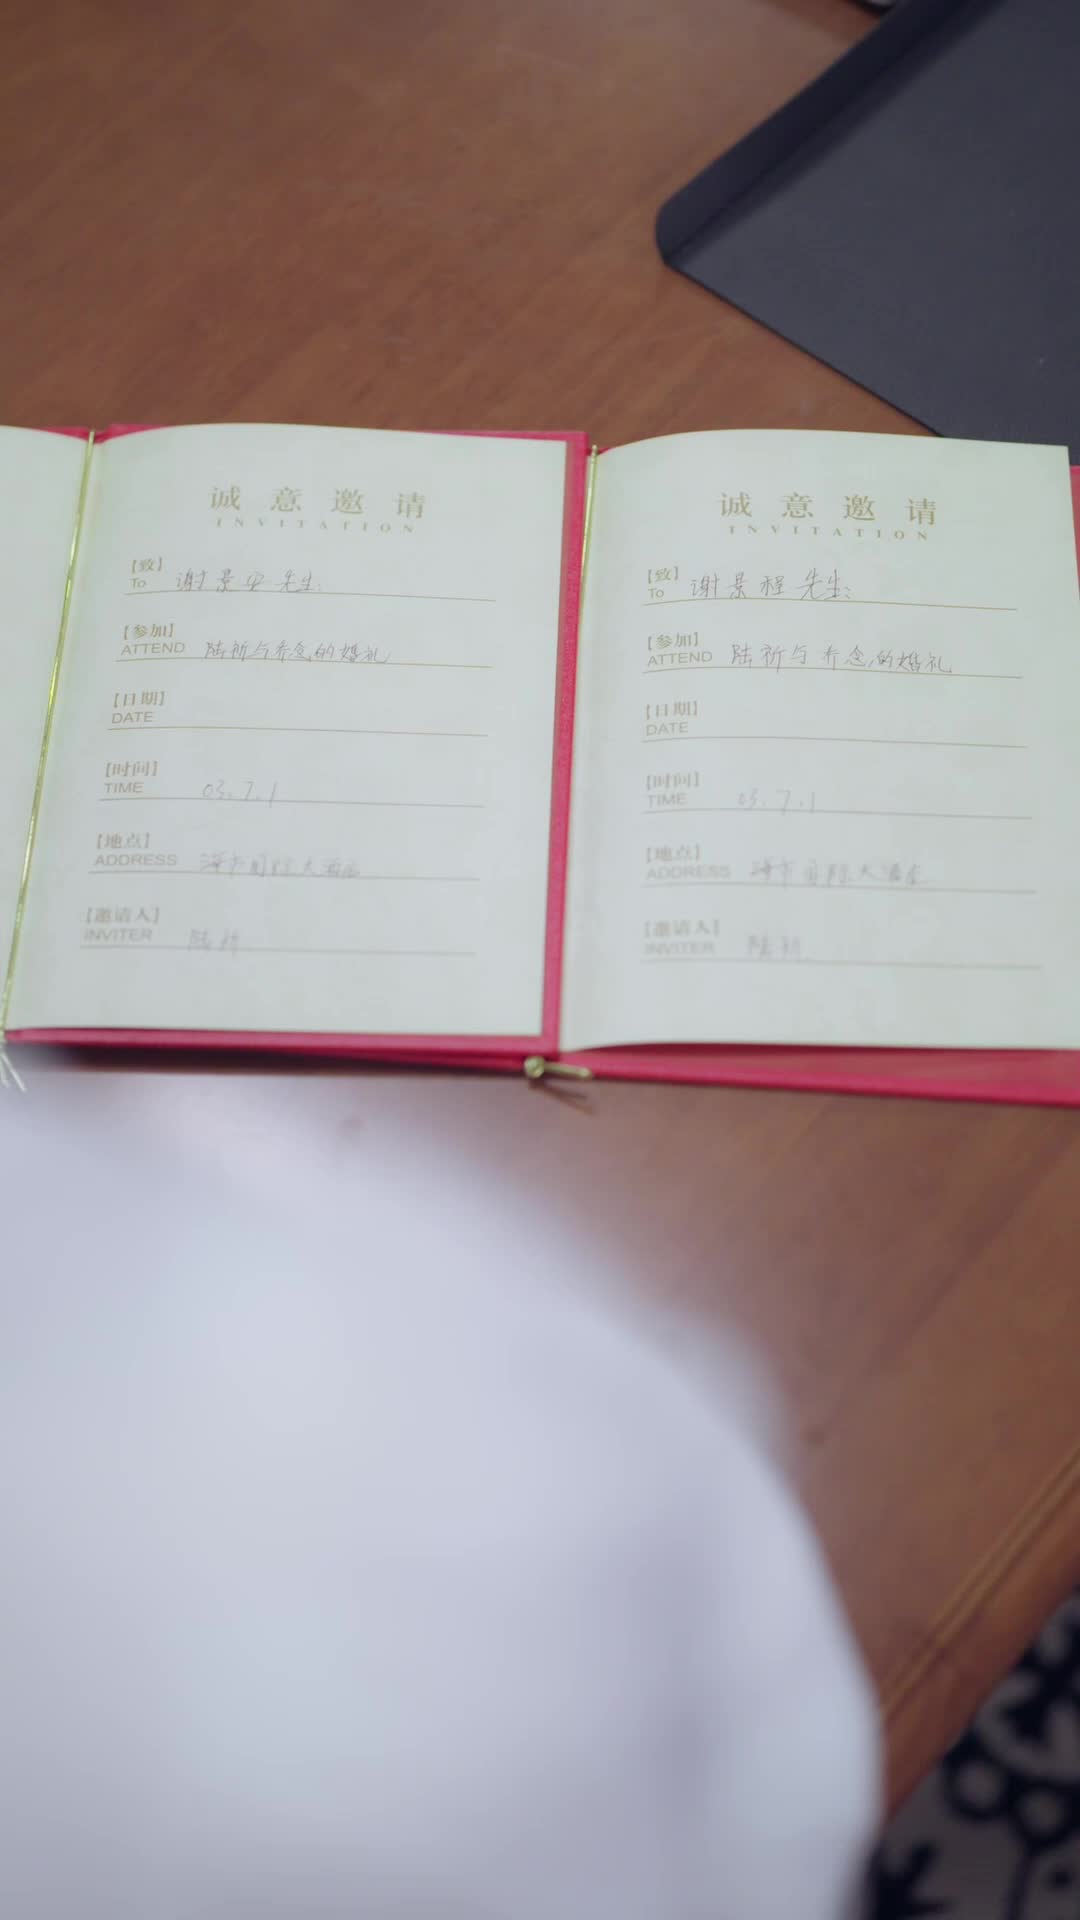 诚意邀请
INVITATION
【致】
To 谢景安先生:
【参加】
ATTEND 陆祈与乔念的婚礼
【日期】
DATE
【时间】
TIME 03.7.1
【地点】
ADDRESS 海市国际大酒店
【邀请人】
INVITER 陆祈
诚意邀请
INVITATION
【致】
To 谢景程先生:
【参加】
ATTEND 陆祈与乔念的婚礼
【日期】
DATE
【时间】
TIME 03.7.1
【地点】
ADDRESS 海市国际大酒店
【邀请人】
INVITER 陆祈